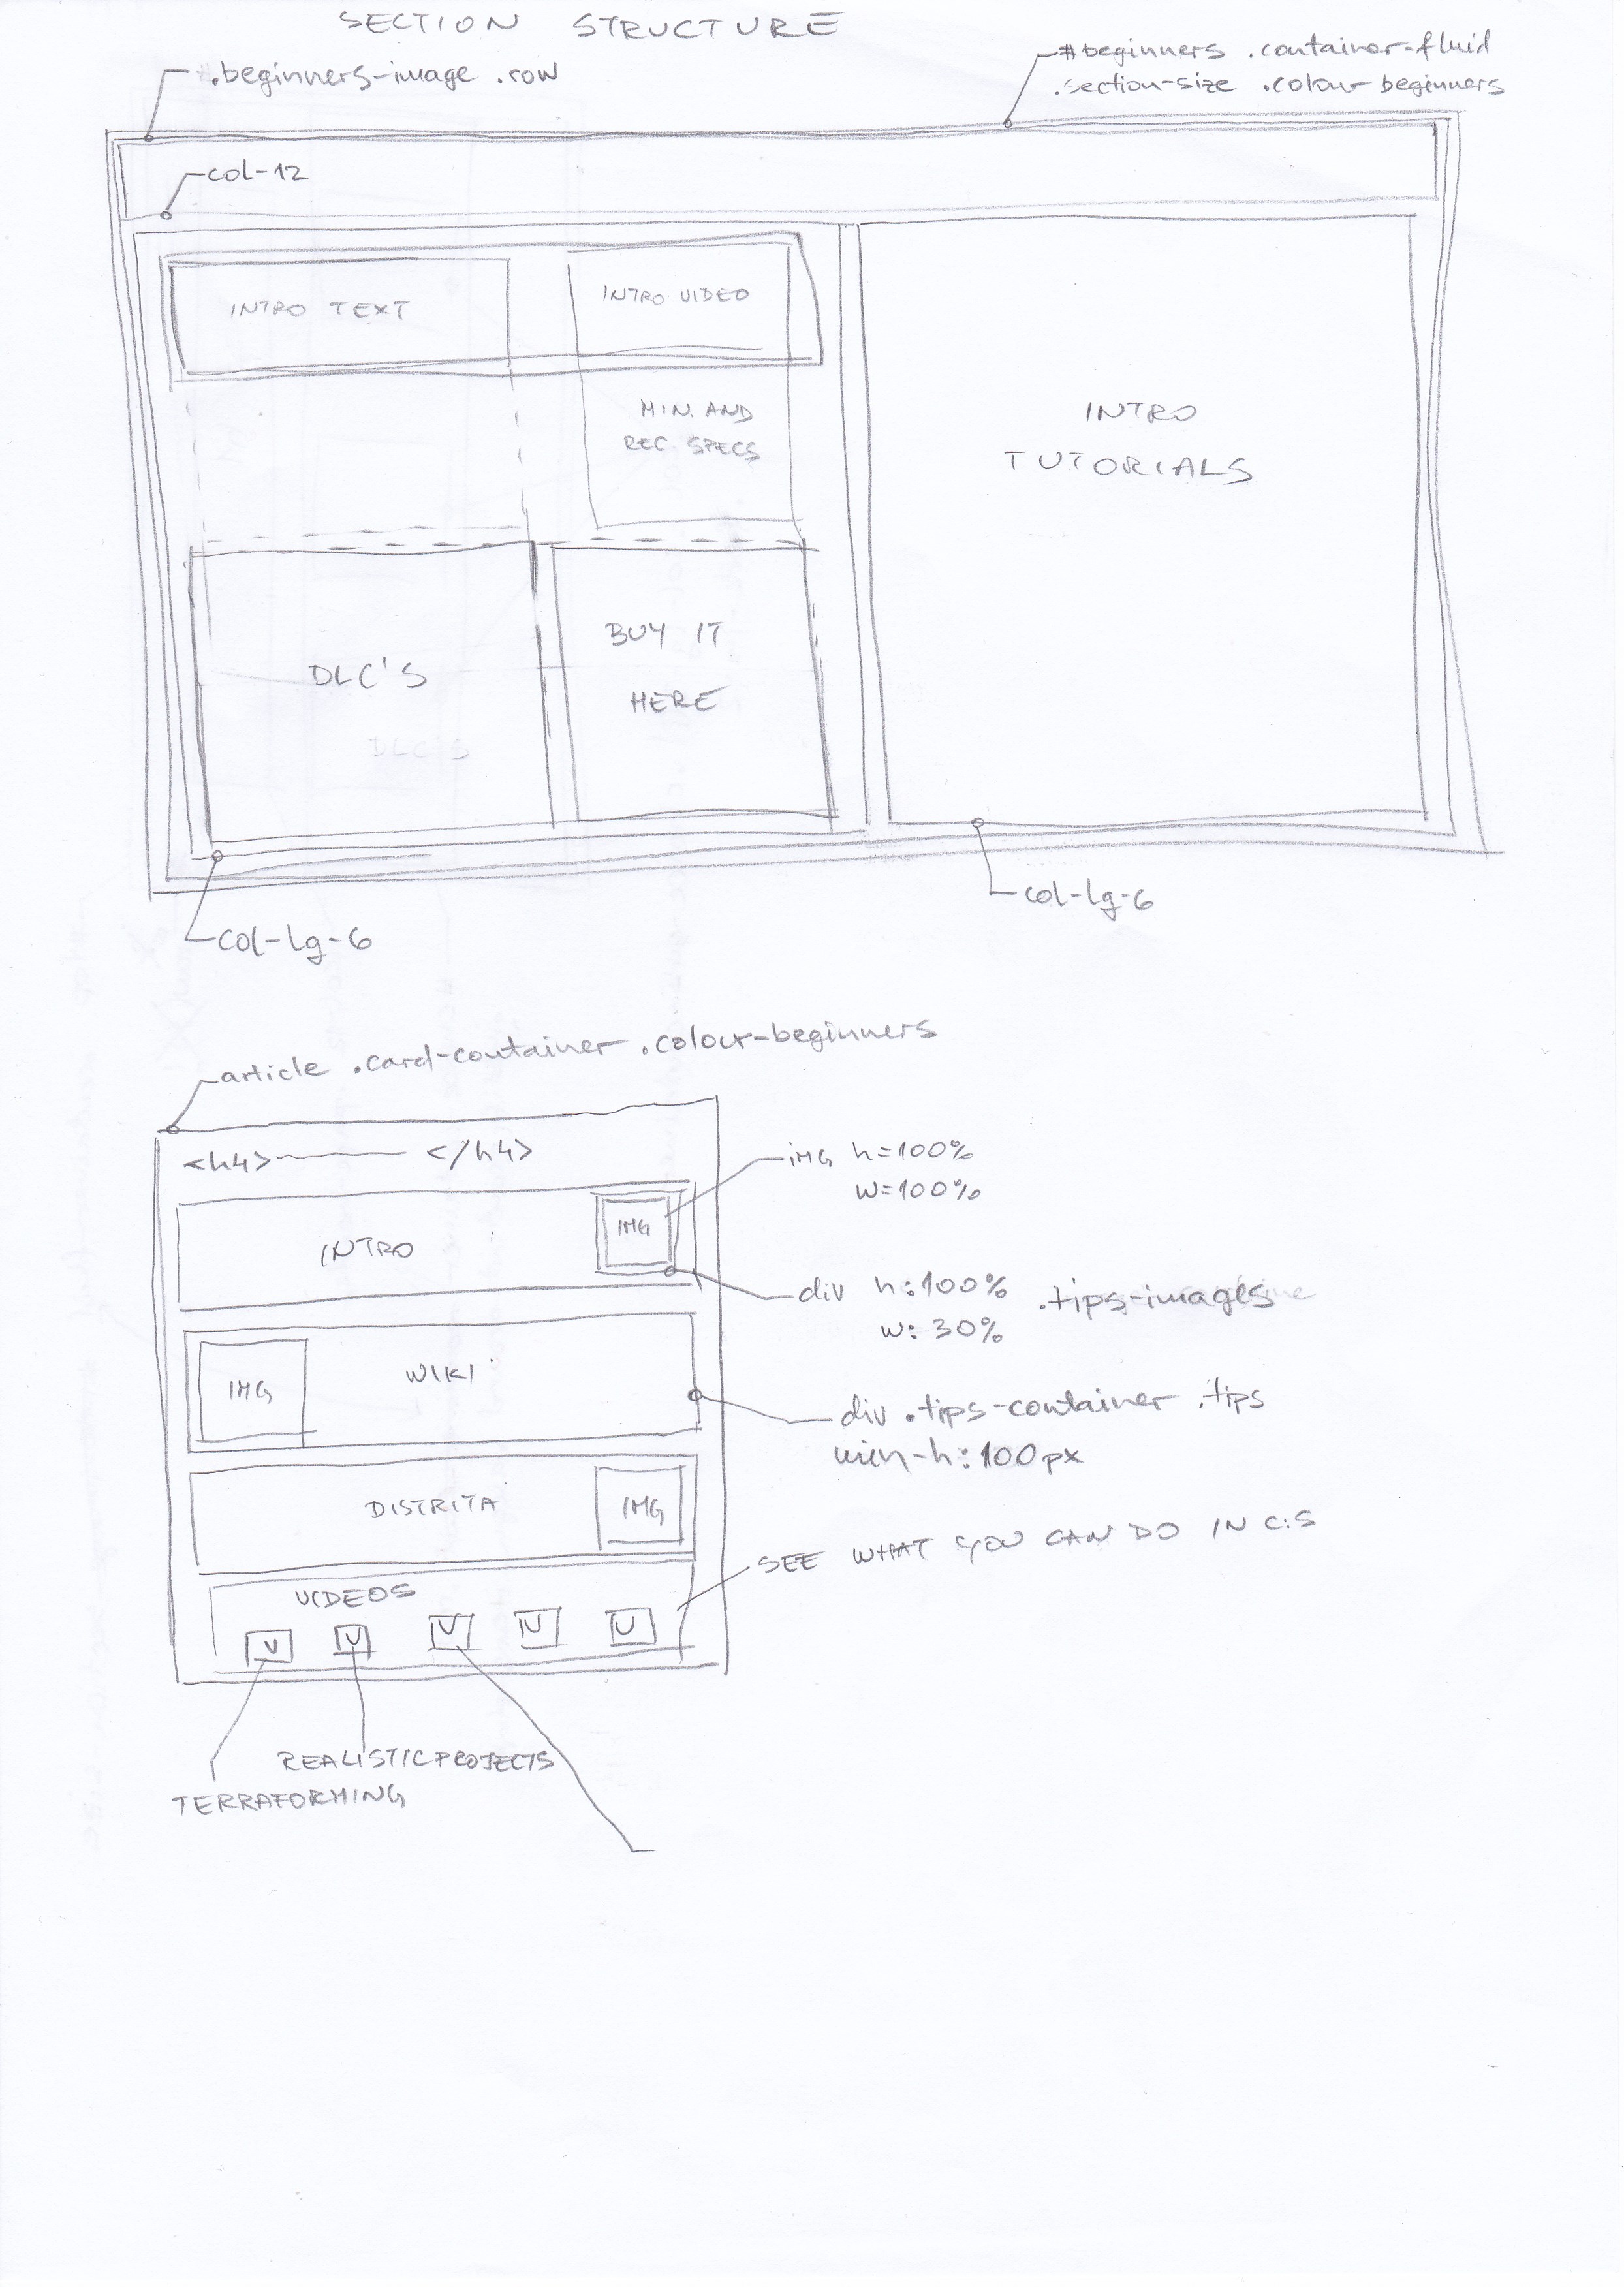 SECTION STRUCTURE
.beginners-image .row
#beginners .container-fluid
.section-size .colour-beginners
col-12
INTRO TEXT
INTRO VIDEO
MIN. AND
REC. SPECS
INTRO
TUTORIALS
DLC'S
DLC'S
BUY IT
HERE
col-lg-6
col-lg-6
article .card-container .colour-beginners
<h4> </h4>
IMG h=100%
w=100%
INTRO
IMG
div h:100%
w: 30%
.tips-images
IMG
WIKI
div .tips-container .tips
min-h:100px
DISTRITA
IMG
SEE WHAT YOU CAN DO IN C:S
VIDEOS
V V V V V
REALISTIC PROJECTS
TERRAFORMING